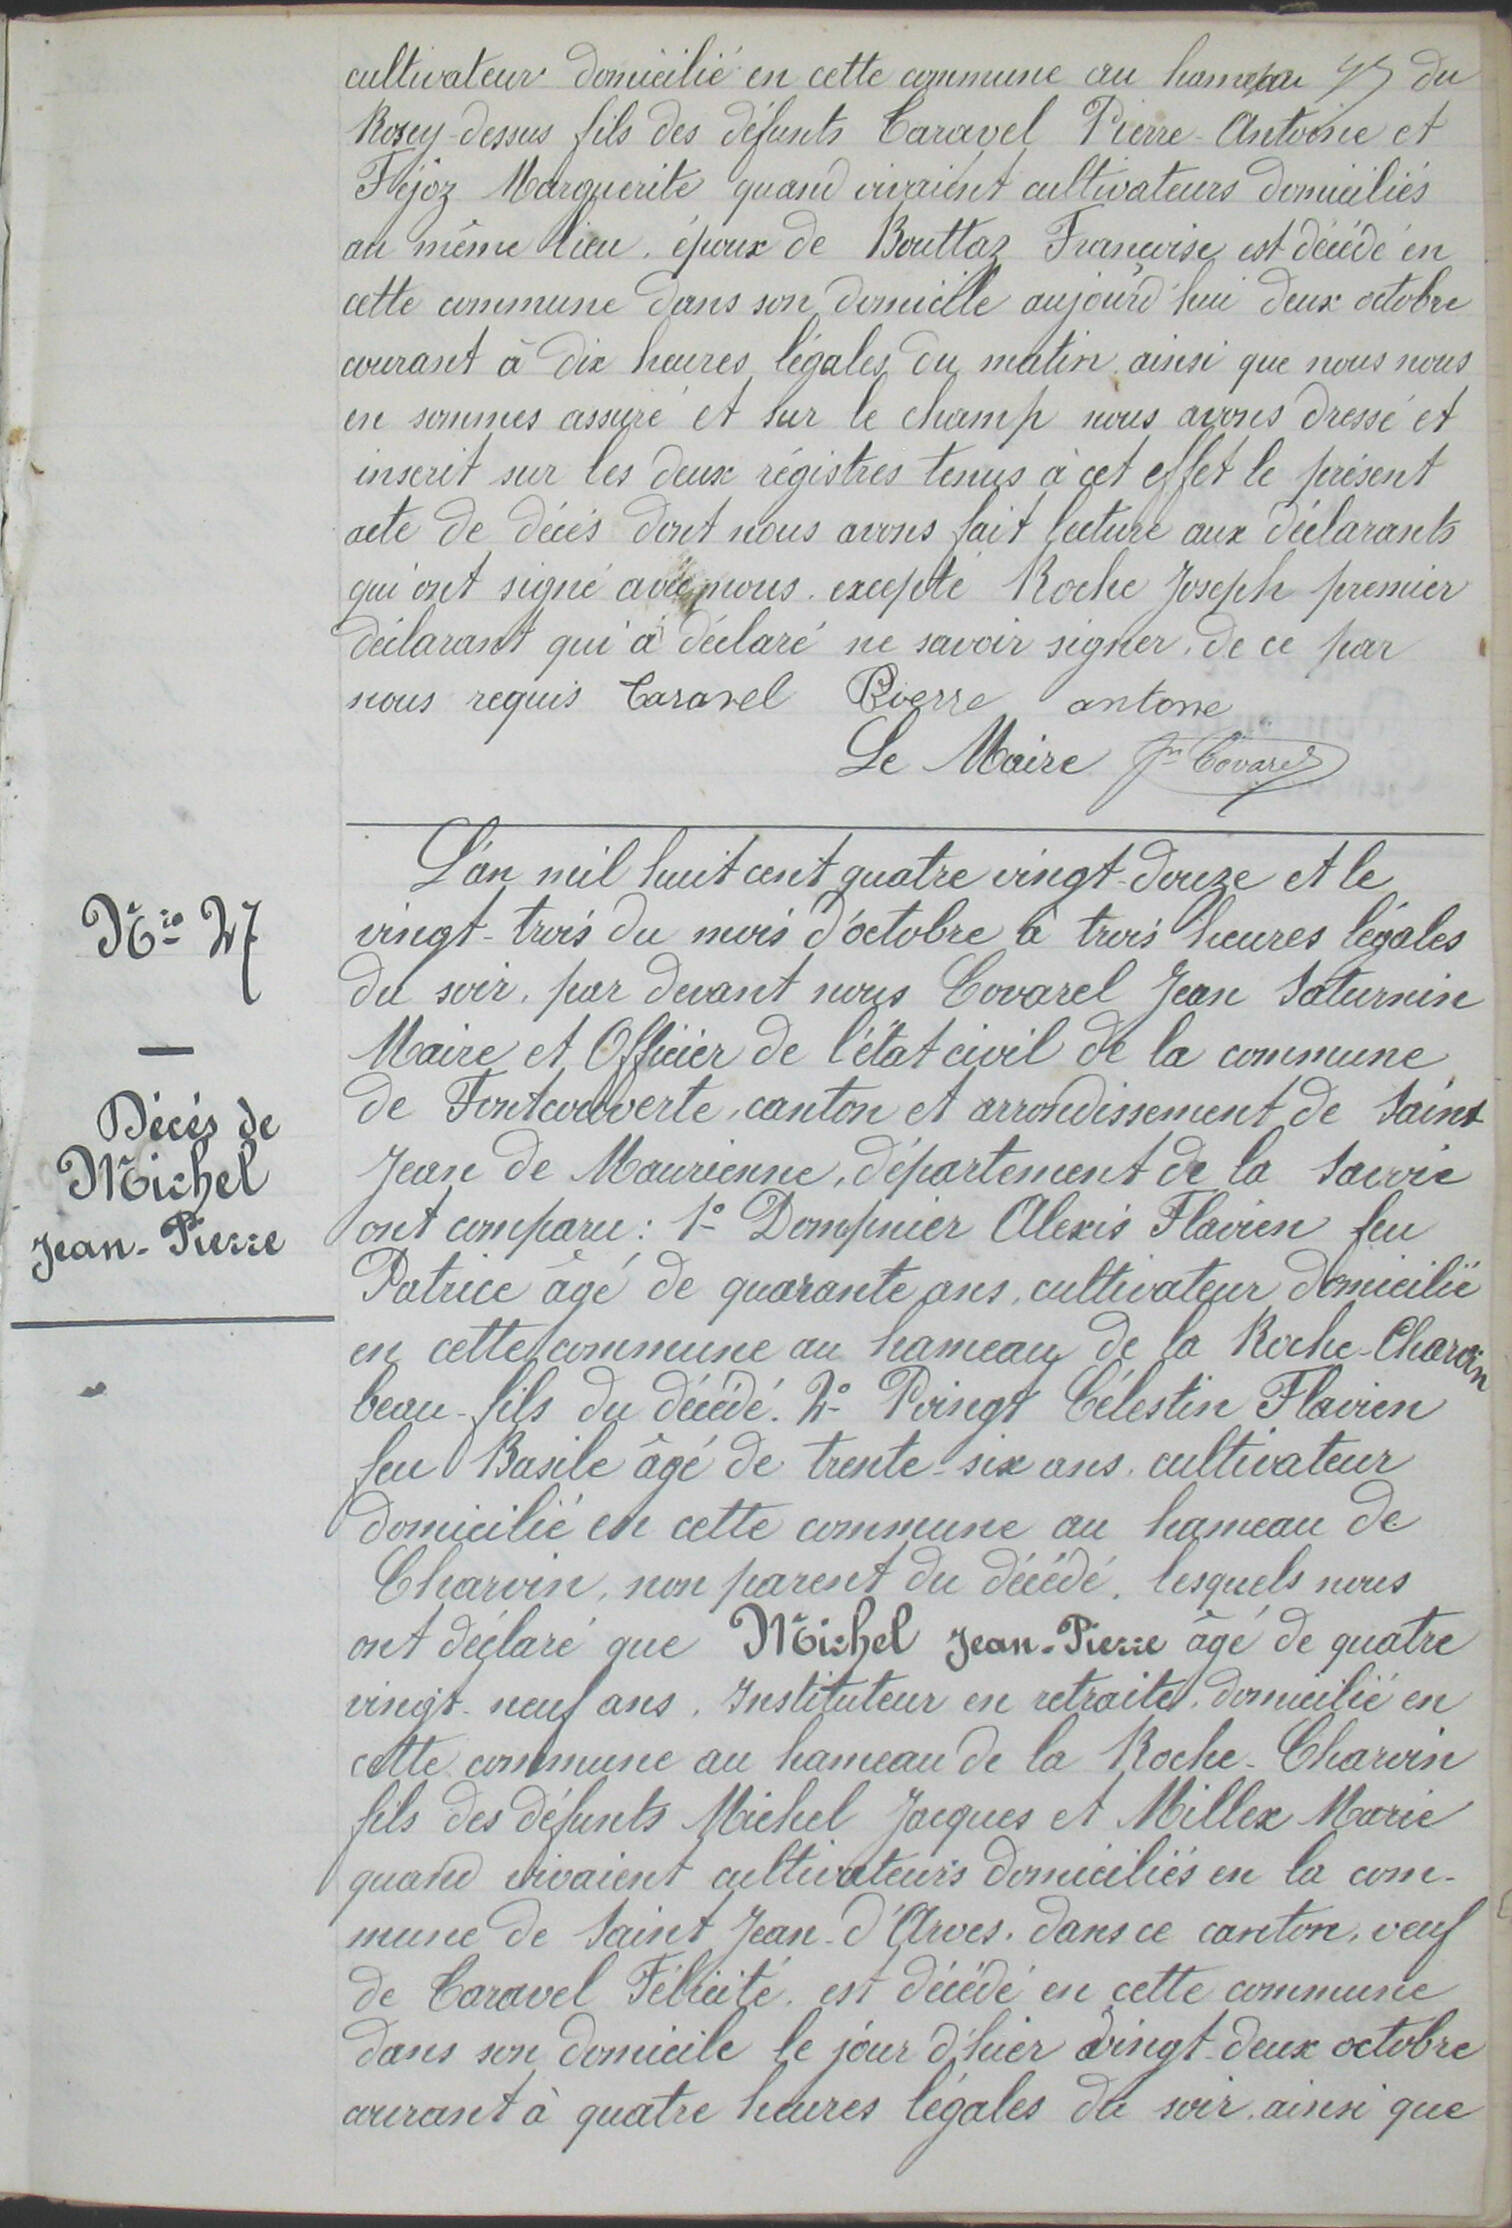 cultivateur domicilié en cette commune au hameau du
Rosey-dessus fils des défunts Caravel Pierre-Antoine et
Féjoz Marguerite quand vivaient cultivateurs domiciliés
au même lieu, époux de Bouttaz Françoise est décédé en
cette commune dans son domicile aujourd'hui deux octobre
courant à dix heures légales du matin, ainsi que nous nous
en sommes assuré et sur le champ nous avons dressé et
inscrit sur les deux régistres tenus à cet effet le présent
acte de décès dont nous avons fait lecture aux déclarants
qui ont signé avec nous, excepté Roche Joseph premier
déclarant qui a déclaré ne savoir signer, de ce par
nous requis Caravel Pierre antone
Le Maire Jn Covarel
N.ro 27
—
Décès de
Michel
Jean-Pierre
L'an mil huit cent quatre vingt-douze et le
vingt-trois du mois d'octobre à trois heures légales
du soir, par devant nous Covarel Jean Saturnin
Maire et Officier de l'état civil de la commune
de Fontcouverte, canton et arrondissement de Saint
Jean de Maurienne, département de la Savoie
ont comparu: 1° Dompnier Alexis Flavien feu
Patrice âgé de quarante ans, cultivateur domicilié
en cette commune au hameau de la Roche-Charvin
beau-fils du décédé. 2° Poingt Célestin Flavien
feu Basile âgé de trente-six ans, cultivateur
domicilié en cette commune au hameau de
Charvin, non parent du décédé, lesquels nous
ont déclaré que Michel Jean-Pierre âgé de quatre
vingt-neuf ans, Instituteur en retraite, domicilié en
cette commune au hameau de la Roche-Charvin
fils des défunts Michel Jacques et Millex Marie
quand vivaient cultivateurs domiciliés en la com-
mune de Saint Jean-d'Arves, dans ce canton, veuf
de Caravel Félicité, est décédé en cette commune
dans son domicile le jour d'hier vingt-deux octobre
courant à quatre heures légales du soir, ainsi que